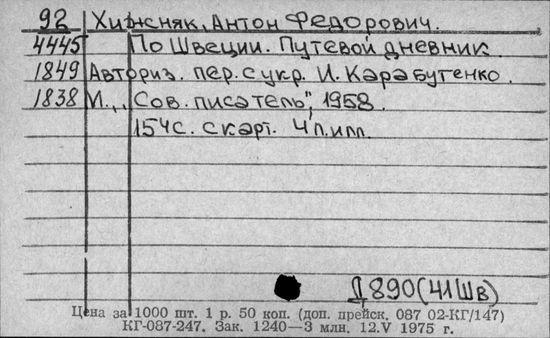 92 Хижняк, Антон Федорович.
4445 По Швеции. Путевой дневник.
1849 Авториз. пер. с укр. И. Карабутенко.
1838 М., „Сов. писатель", 1958.
154с. с карт. 4 л. илл.
Д 890(41Шв)
Цена за 1000 шт. 1 р. 50 коп. (доп. прейск. 087 02-КГ/147)
КГ-087-247. Зак. 1240—3 млн. 12.V 1975 г.